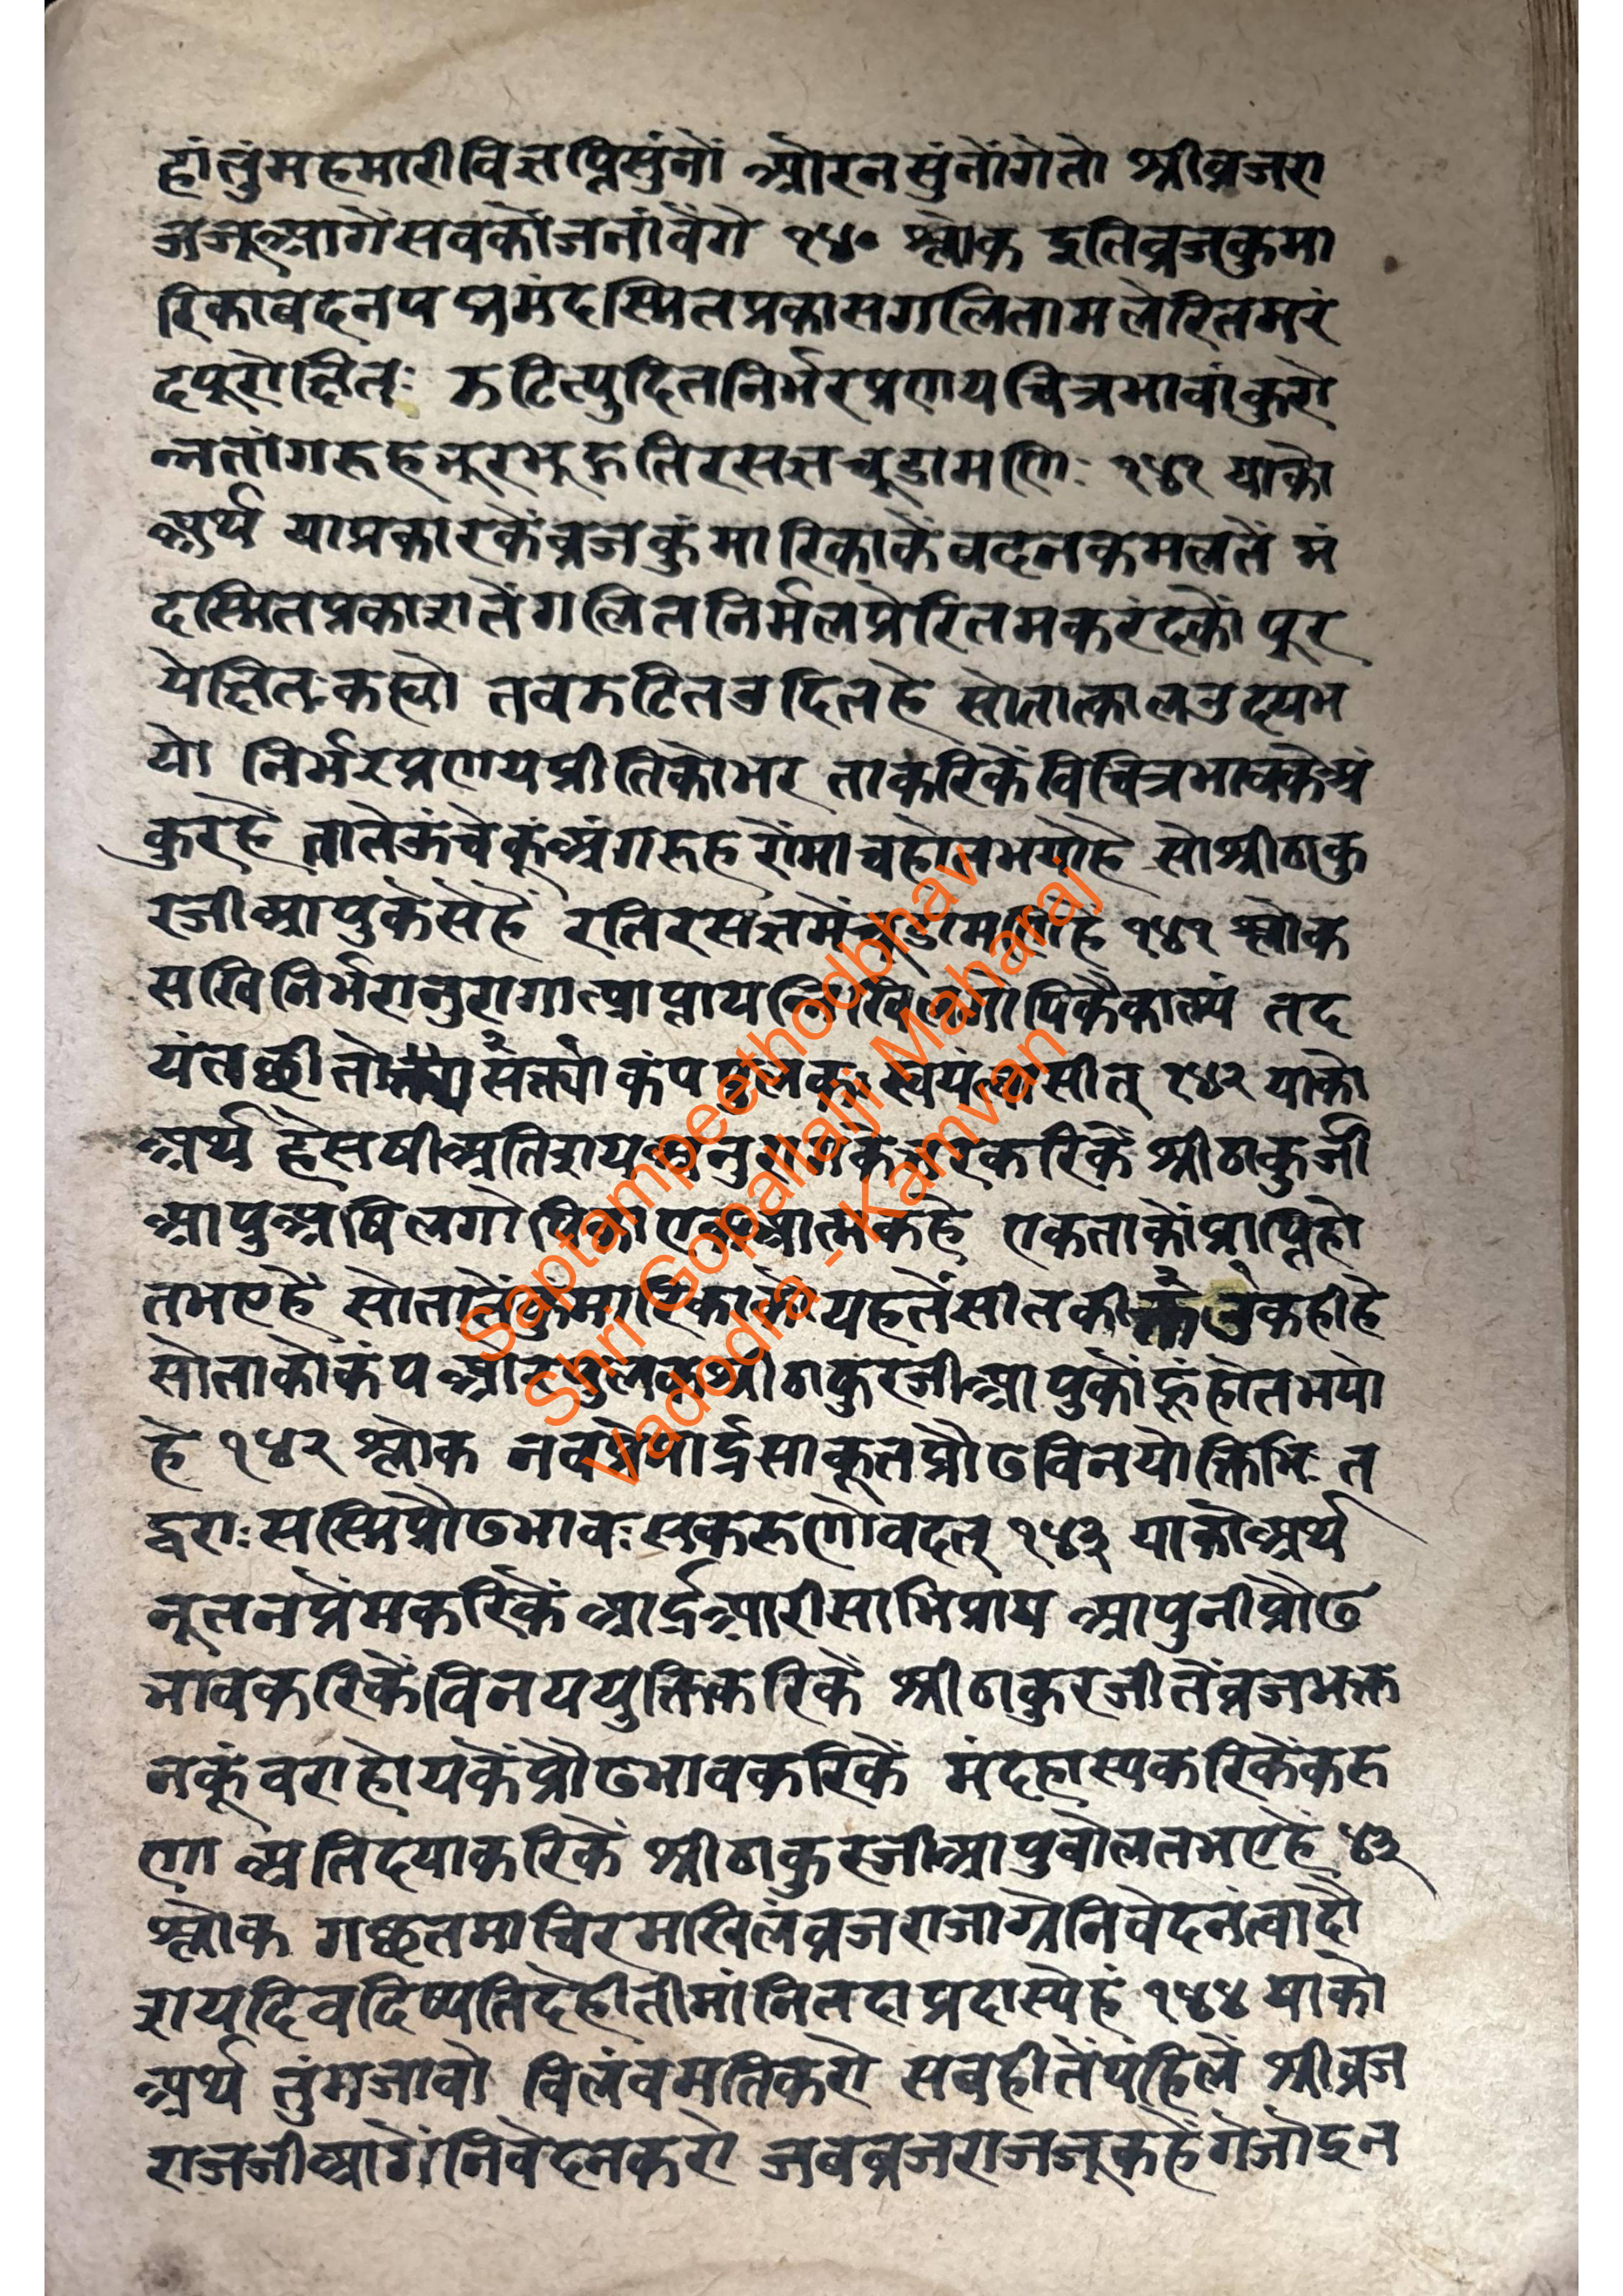 हांतुंमहमारीविज्ञप्तिसुंनों औरनसुंनोंगेतो श्रीव्रजरा
जजूआगेंसवकोंजनांवेंगे १४० श्लोक इतिव्रजकुमा
रिकावदनपद्ममंदस्मितप्रकासगलितामलेरितमरं
दपूरोक्षितः ऊटित्युदितनिर्भरप्रणयचित्रभावांकुरो
न्नतांगरुहभूरभूद्रतिरसज्ञचूडामणिः १४१ याको
अर्थ याप्रकारकेंव्रजकुंमारिकाकें वदनकमलतें मं
दस्मितप्रकाशतेंगलितनिर्मलप्रेरितमकरंदकों पूर
येक्षितःकह्यो तवऊटितउदितहे सोतात्कालउदयभ
यो निर्भरप्रणयप्रीतिकोभर ताकरिकेंविचित्रभावकेअं
कुरहें तातेऊंचेकूंअंगरुहरोंमांचहोतभयोहे सोश्रीठाकु
रजीआपुकेसेंहें रतिरसज्ञमेंचूडामणिहे १४१ श्लोक
सखिनिर्भरानुरागात्प्राप्तायन्निखिलगोपिकैकात्म्यं तद
यंतछीतो सक्त्या कंपपुलकः स्वयंआसीत् १४२ याको
अर्थ हेसषीअतिशयअनुरागकेभरकरिकें श्रीठाकुर्जी
आपुअषिलगोपिकाएकआत्मकहे एकताकोंप्राप्तिहो
तभएहें सोतातेंकुंमारिकाकोंयहतेंसीतकी कहीहे
सोताकोकंप औरपुलकश्रीठाकुरजीआपुकोंहूंहोतभयो
हे १४२ श्लोक नवप्रेमार्द्रसाकूतप्रौढविनयोक्तिभिः त
द्वराःसस्मिप्रौढभावःसकरुणोवदत् १४३ याकोअर्थ
नूतनप्रेंमकरिकें आर्द्रआरीसाभिप्राय आपुनीप्रौढ
भावकरिकेंविनययुक्तिकरिकें श्रीठाकुरजीतेंव्रजभक्त
नकूंवराहोयकेंप्रौढभावकरिकें मंदहास्यकरिकेंकरु
णा अतिदयाकरिकें श्रीठाकुरजीआपुवोलतभएहें ४३
श्लोक गछतमाचिरमखिलंव्रजराजाग्रेनिवेदनंत्वादौ
रायदिवदिष्यतिदेहीतीमांनितदाप्रदास्येहं १४४ याको
अर्थ तुंमजावो विलंवमतिकरो सबहीतेंपहिलें श्रीव्रज
राजजीआगेंनिवेदनकरो जबव्रजराजजूकहेंगेजोइन
Saptampeethodbhav
Shri Gopallalji Maharaj
Vadodra - Kamvan